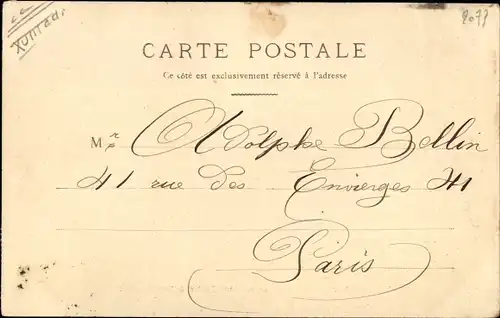 2073
CARTE POSTALE
Ce côté est exclusivement réservé à l'adresse
Mr Adolphe Bellin
41 rue des Envierges 41
Paris